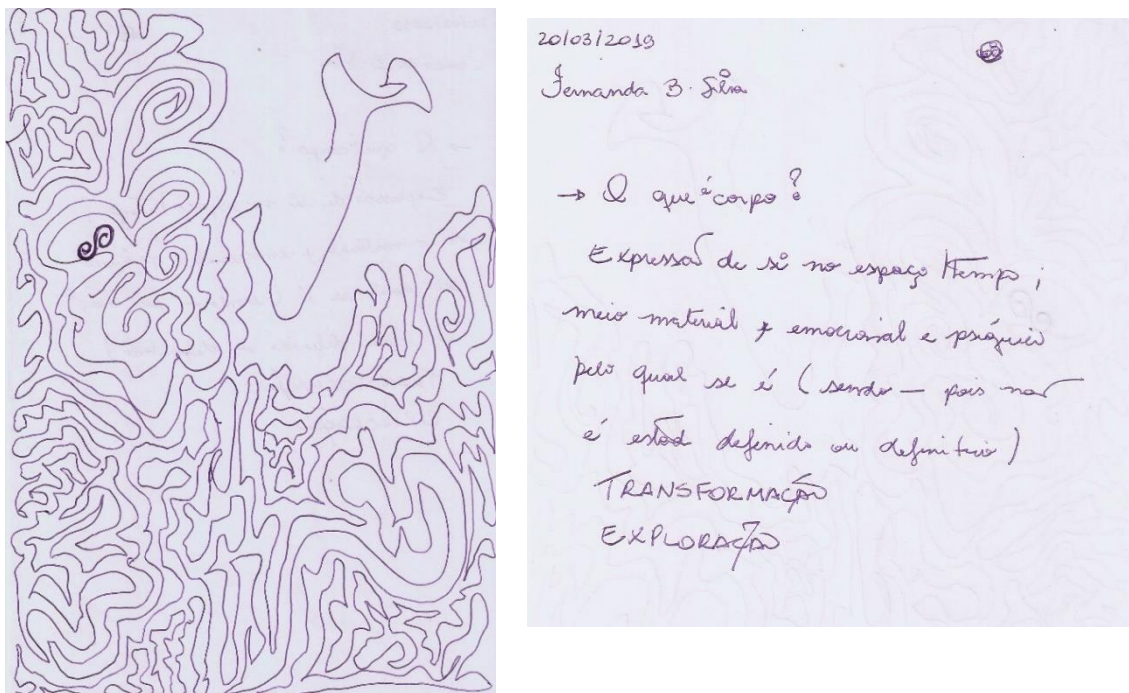 20/03/2019
Fernanda B. Silva
→ O que é corpo?
Expressão de si no espaço/tempo;
meio material, emocional e psíquico
pelo qual se é (sendo — pois não
é estado definido ou definitivo)
TRANSFORMAÇÃO
EXPLORAÇÃO